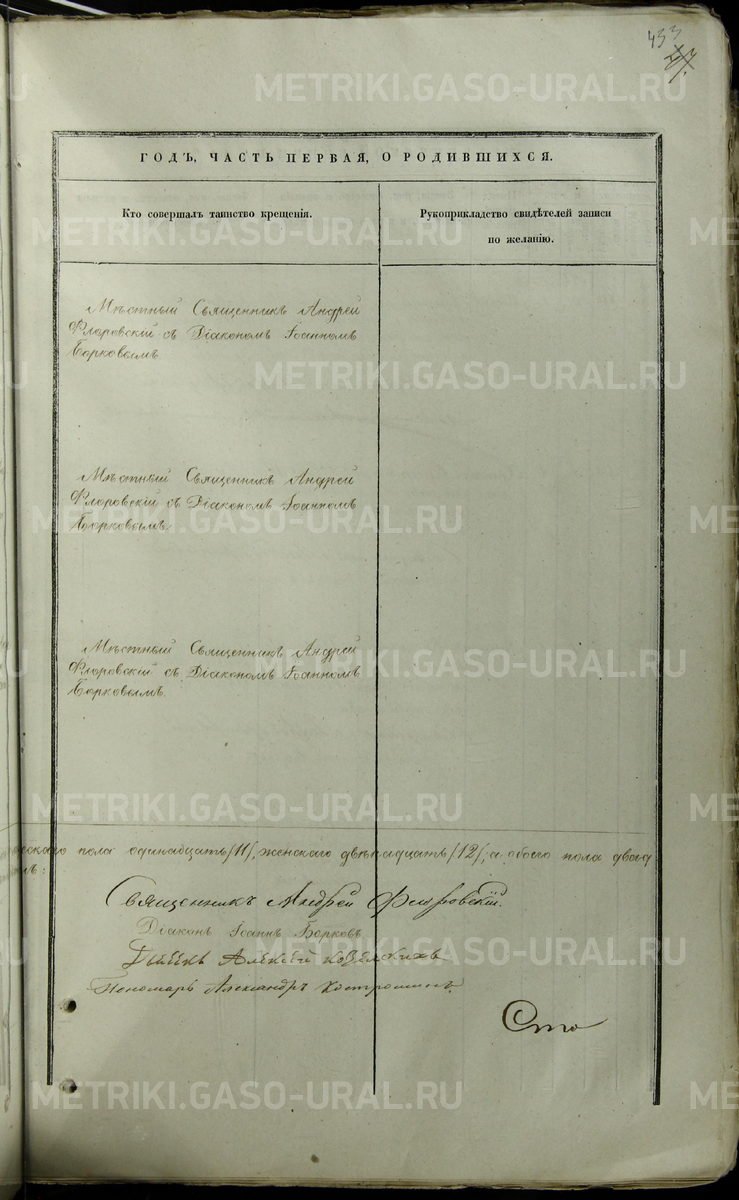 433
METRIKI.GASO-URAL.RU
ГОДЪ, ЧАСТЬ ПЕРВАЯ, О РОДИВШИХСЯ.
Кто совершалъ таинство крещенія.
Рукоприкладство свидѣтелей записи
по желанію.
Мѣстный Священникъ Андрей
Флоровскій съ Діакономъ Іоанномъ
Борковымъ
Мѣстный Священникъ Андрей
Флоровскій съ Діакономъ Іоанномъ
Борковымъ.
Мѣстный Священникъ Андрей
Флоровскій съ Діакономъ Іоанномъ
Борковымъ.
пола одинадцать /11/, женскаго двѣнадцать /12/, а обоего пола двад
Священникъ Андрей Флоровскій.
Діаконъ Іоаннъ Борковъ
Алексѣй
Пономарь Александръ Костроминъ.
Сто